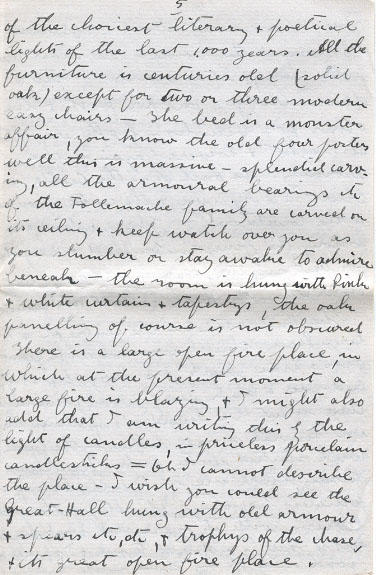 5
of the choicest literary & poetical
lights of the last 1,000 years. All the
furniture is centuries old (solid
oak) except for two or three modern
easy chairs – The bed is a monster
affair, you know the old four poster
well this is massive – splendid carv-
ing, all the armourial bearings etc
of the Tollemache family are carved on
its ceiling & keep watch over you as
you slumber or stay awake to admire
beneath – the room is hung with Pink
& white curtains & tapestrys, the oak
panelling of course is not obscured
There is a large open fire place, in
which at the present moment a
large fire is blazing, & I might also
add that I am writing this by the
light of candles, in priceless porcelain
candlesticks = Oh I cannot describe
the place – I wish you could see the
Great-Hall hung with old armour
& spears etc, etc, & trophys of the chase,
& its great open fire place.